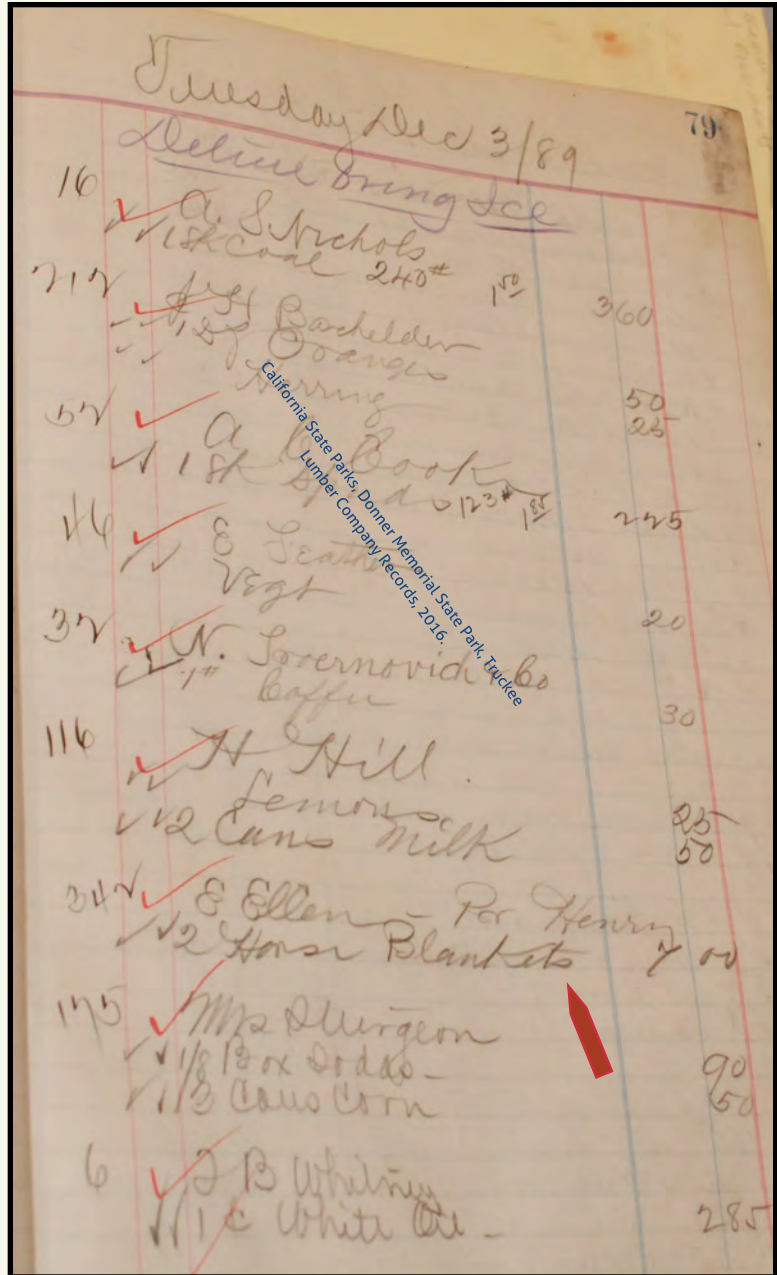 79
Tuesday Dec 3/89
bring Ice
16 A. S. Nichols
1 Sk Coal 240# 1 50 360
212 Bachelder
1 Dz Oranges 50
Herring 25
52 A C Cook
1 Sk Spuds 123# 1 85 225
46 E
Vegt 20
32 N. & Co
1# Coffee 30
116 H Hill
Lemons 25
2 Cans Milk 50
342 E Ellen - Per Henry
2 Horse Blankets 7 00
175 Mrs Sturgeon
1/8 Box Sodas - 90
3 Cans Corn 50
6 J B Whitney
1 C White Oil - 285
California State Parks, Donner Memorial State Park, Truckee
Lumber Company Records, 2016.